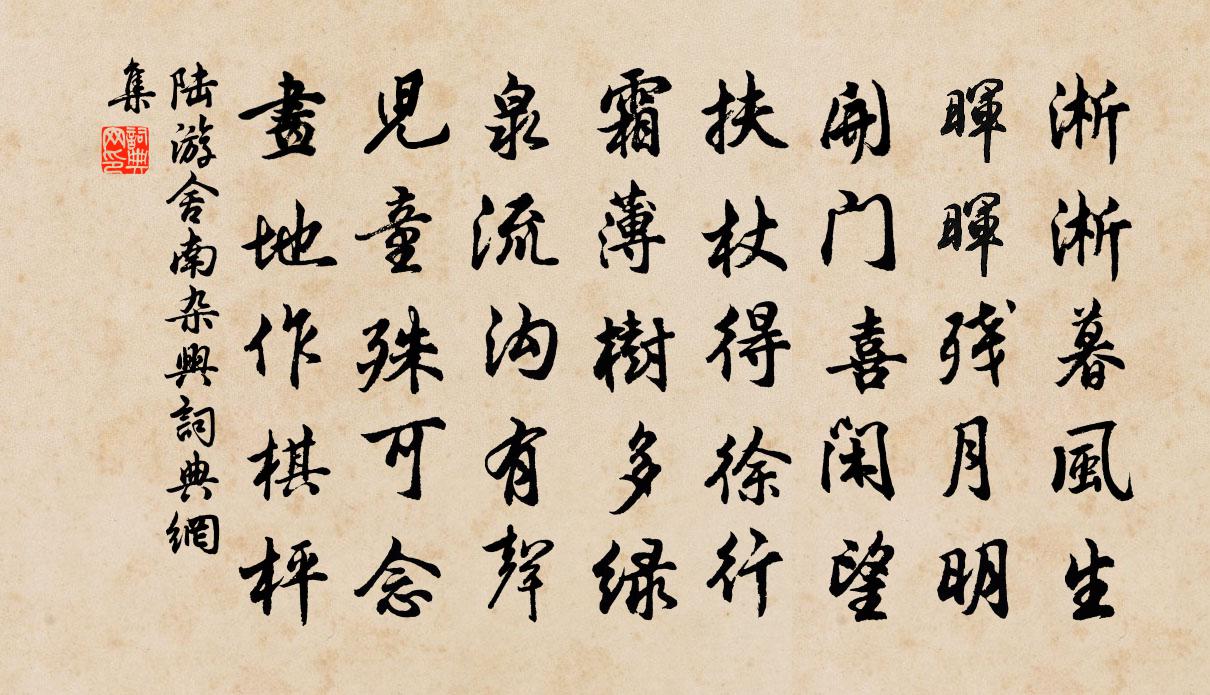 淅淅暮風生
暉暉残月明
開門喜閑望
扶杖得徐行
霜薄樹多緑
泉流沟有聲
児童殊可念
畫地作棋枰
陆游舍南杂興詞典網
集
詞典
网印